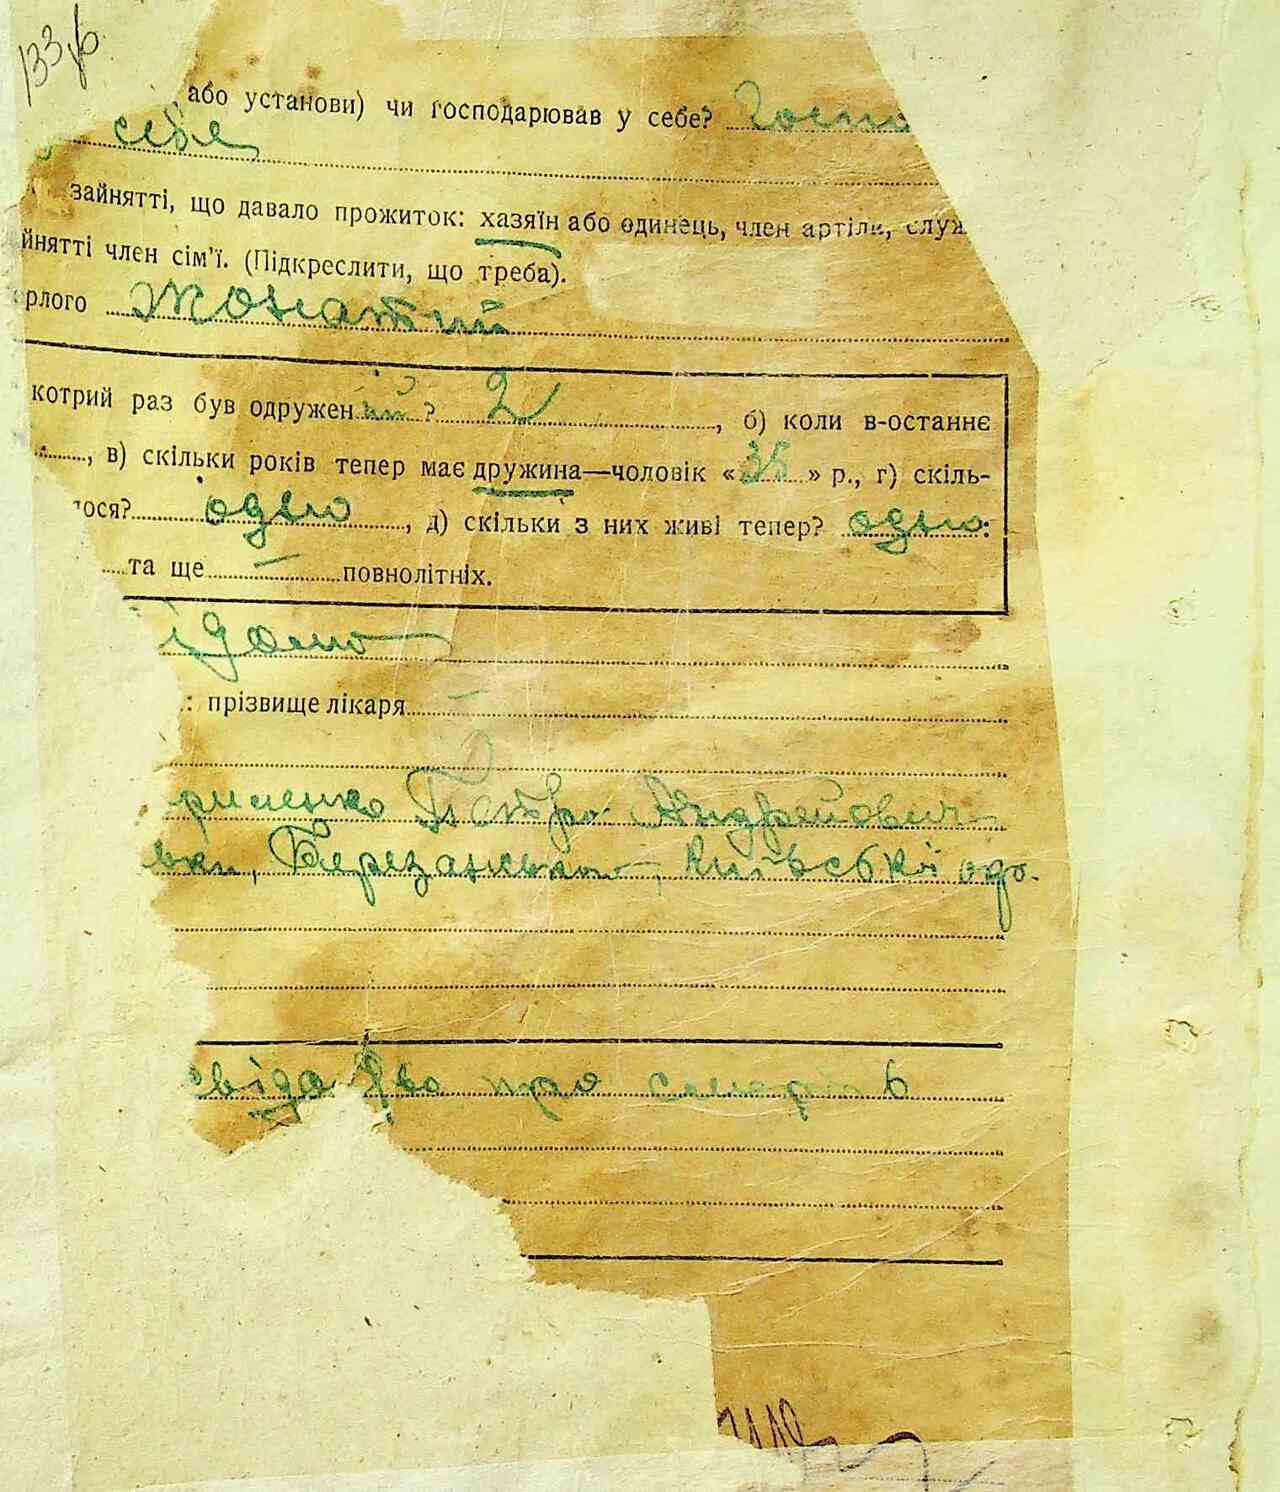 133
або установи) чи господарював у себе? Госпо
себе
зайнятті, що давало прожиток: хазяїн або одинець, член артіли, служ
йнятті член сім'ї. (Підкреслити, що треба).
ерлого Жонатий
котрий раз був одружений? 2, б) коли в-останнє
, в) скільки років тепер має дружина—чоловік «35» р., г) скіль-
лося? одно, д) скільки з них живі тепер? одно:
та ще — повнолітніх.
ідомо
: прізвище лікаря —
рименко Петро Андрейович
вки, Березанського, Київської
свідоцтво про смерть